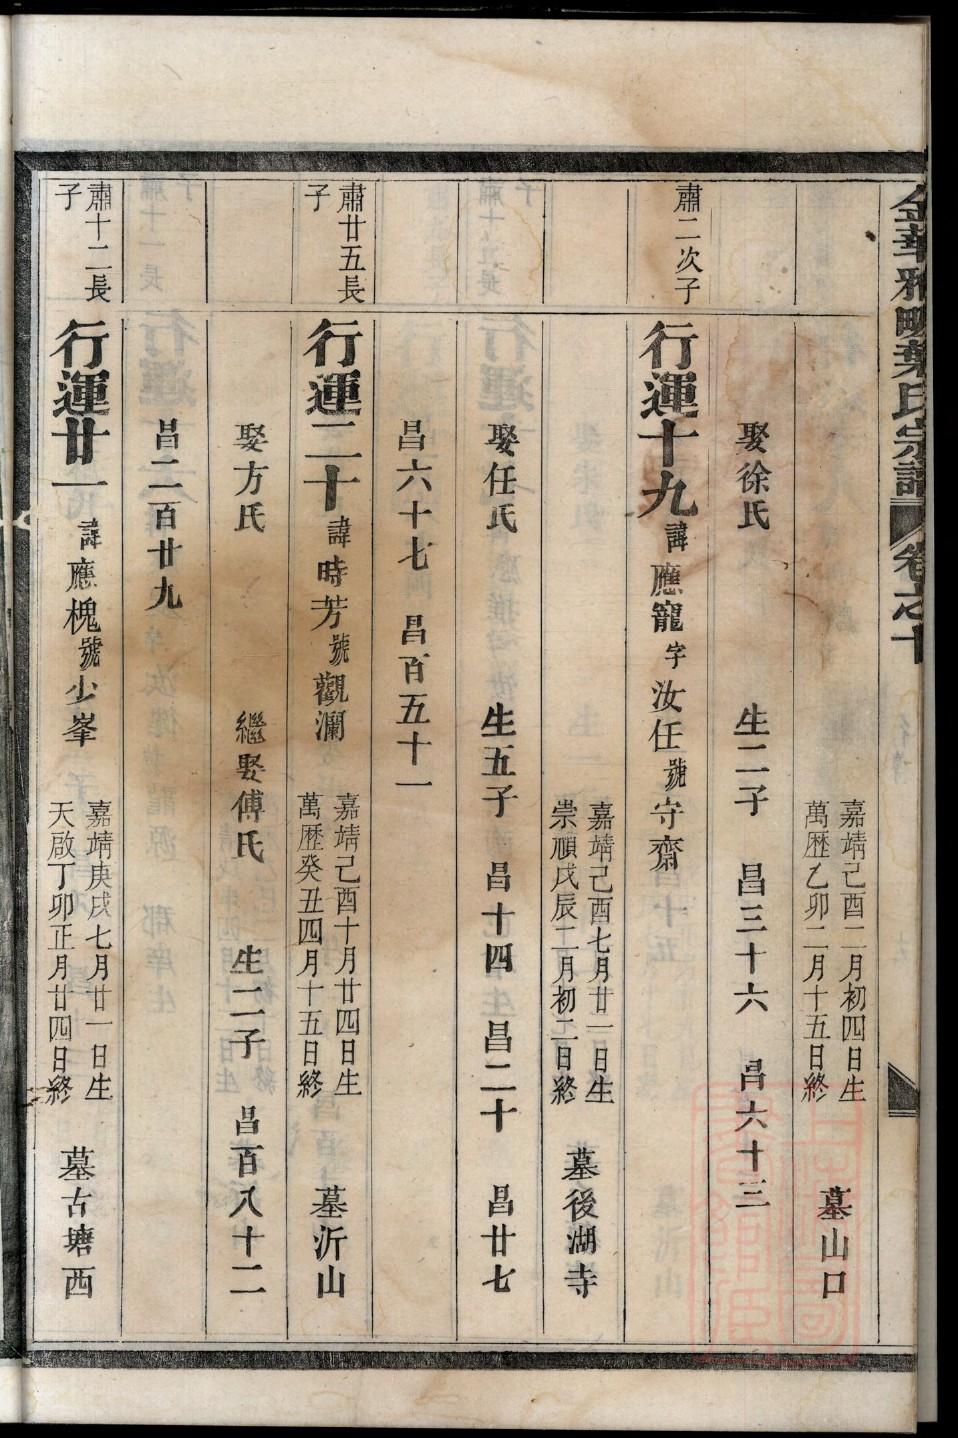 金華雅畈葉氏宗譜 卷之十
嘉靖己酉二月初四日生
萬歷乙卯二月十五日終
墓山口
娶徐氏 生二子 昌三十六 昌六十三
肅二次子
行運十九 諱應龍 字汝任 號守齋
嘉靖己酉七月廿一日生
崇禎戊辰二月初二日終
墓後湖寺
娶任氏 生五子 昌十四 昌二十 昌廿七
昌六十七 昌百五十一
肅廿五長子
行運二十 諱時芳 號觀瀾
嘉靖己酉十月廿四日生
萬歷癸丑四月十五日終
墓沂山
娶方氏 繼娶傅氏 生二子 昌百八十二
昌二百廿九
肅十二長子
行運廿一 諱應槐 號少峯
嘉靖庚戌七月廿一日生
天啟丁卯正月廿四日終
墓古塘西